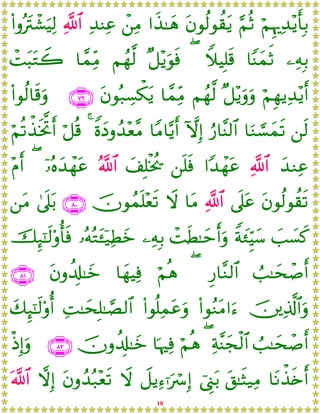 بِأَيْدِيهِمْ ثُمَّ يَقُولُونَ هَٰذَا مِنْ عِندِ ٱللَّهِ لِيَشْتَرُوا۟
بِهِۦ ثَمَنًا قَلِيلًا ۖ فَوَيْلٌ لَّهُم مِّمَّا كَتَبَتْ
أَيْدِيهِمْ وَوَيْلٌ لَّهُم مِّمَّا يَكْسِبُونَ ٧٩ وَقَالُوا۟
لَن تَمَسَّنَا ٱلنَّارُ إِلَّآ أَيَّامًا مَّعْدُودَةً ۚ قُلْ أَتَّخَذْتُمْ
عِندَ ٱللَّهِ عَهْدًا فَلَن يُخْلِفَ ٱللَّهُ عَهْدَهُۥٓ ۖ أَمْ
تَقُولُونَ عَلَى ٱللَّهِ مَا لَا تَعْلَمُونَ ٨٠ بَلَىٰ مَن
كَسَبَ سَيِّئَةً وَأَحَٰطَتْ بِهِۦ خَطِيٓـَٔتُهُۥ فَأُو۟لَٰٓئِكَ
أَصْحَٰبُ ٱلنَّارِ ۖ هُمْ فِيهَا خَٰلِدُونَ ٨١
وَٱلَّذِينَ ءَامَنُوا۟ وَعَمِلُوا۟ ٱلصَّٰلِحَٰتِ أُو۟لَٰٓئِكَ
أَصْحَٰبُ ٱلْجَنَّةِ ۖ هُمْ فِيهَا خَٰلِدُونَ ٨٢ وَإِذْ
أَخَذْنَا مِيثَٰقَ بَنِىٓ إِسْرَٰٓءِيلَ لَا تَعْبُدُونَ إِلَّا ٱللَّهَ
18